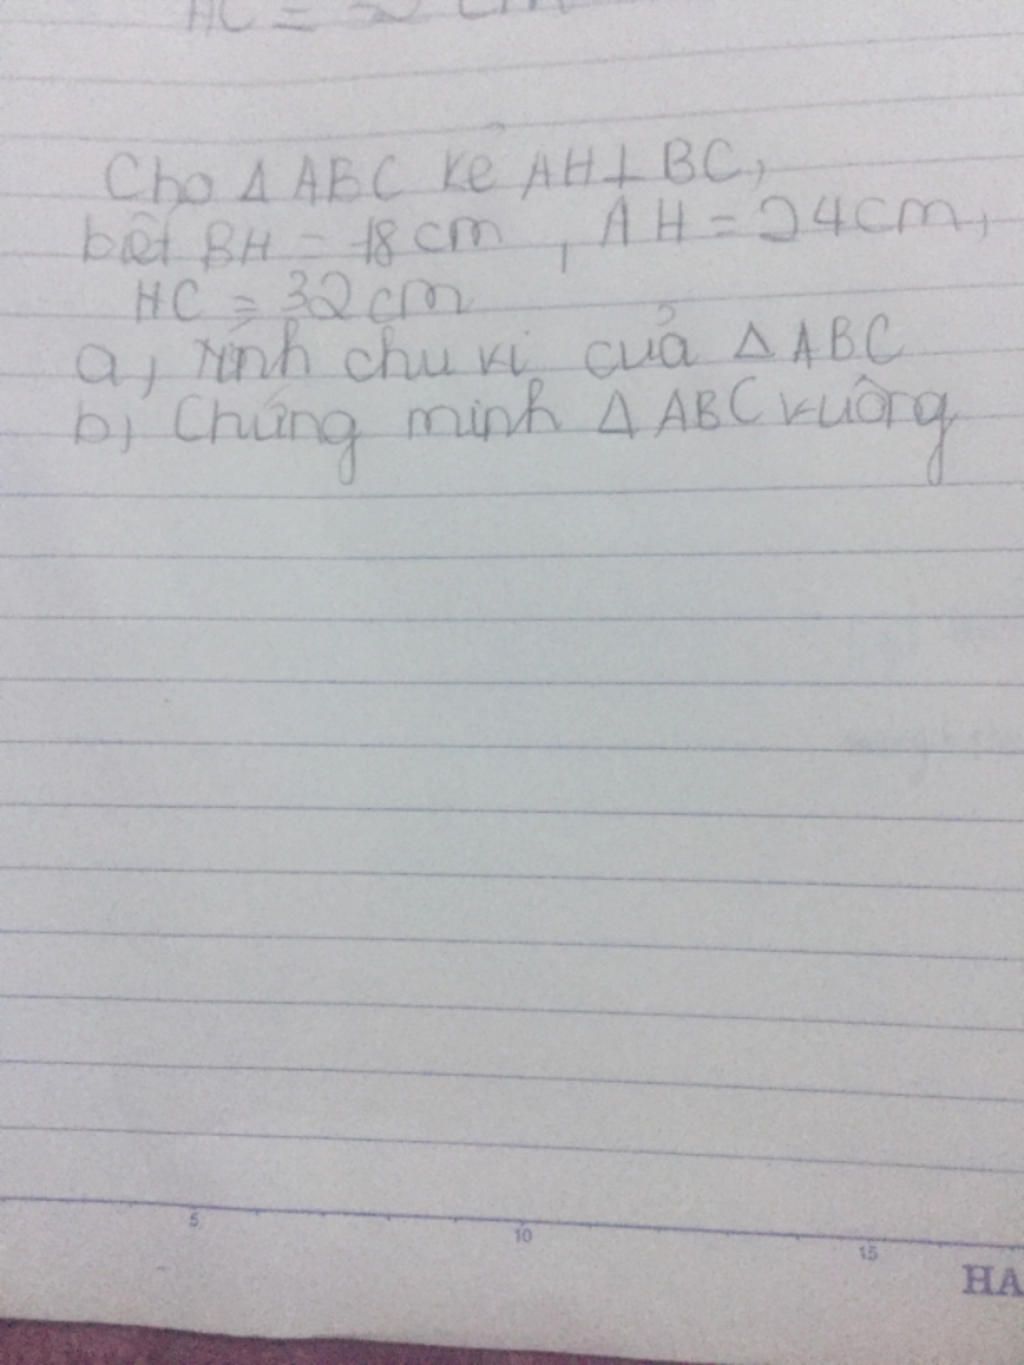 Cho Δ ABC kẻ AH⊥BC,
biết BH = 18cm, AH = 24cm,
HC = 32cm
a, Tính chu vi của Δ ABC
b, Chứng minh Δ ABC vuông
5 10 15
HA